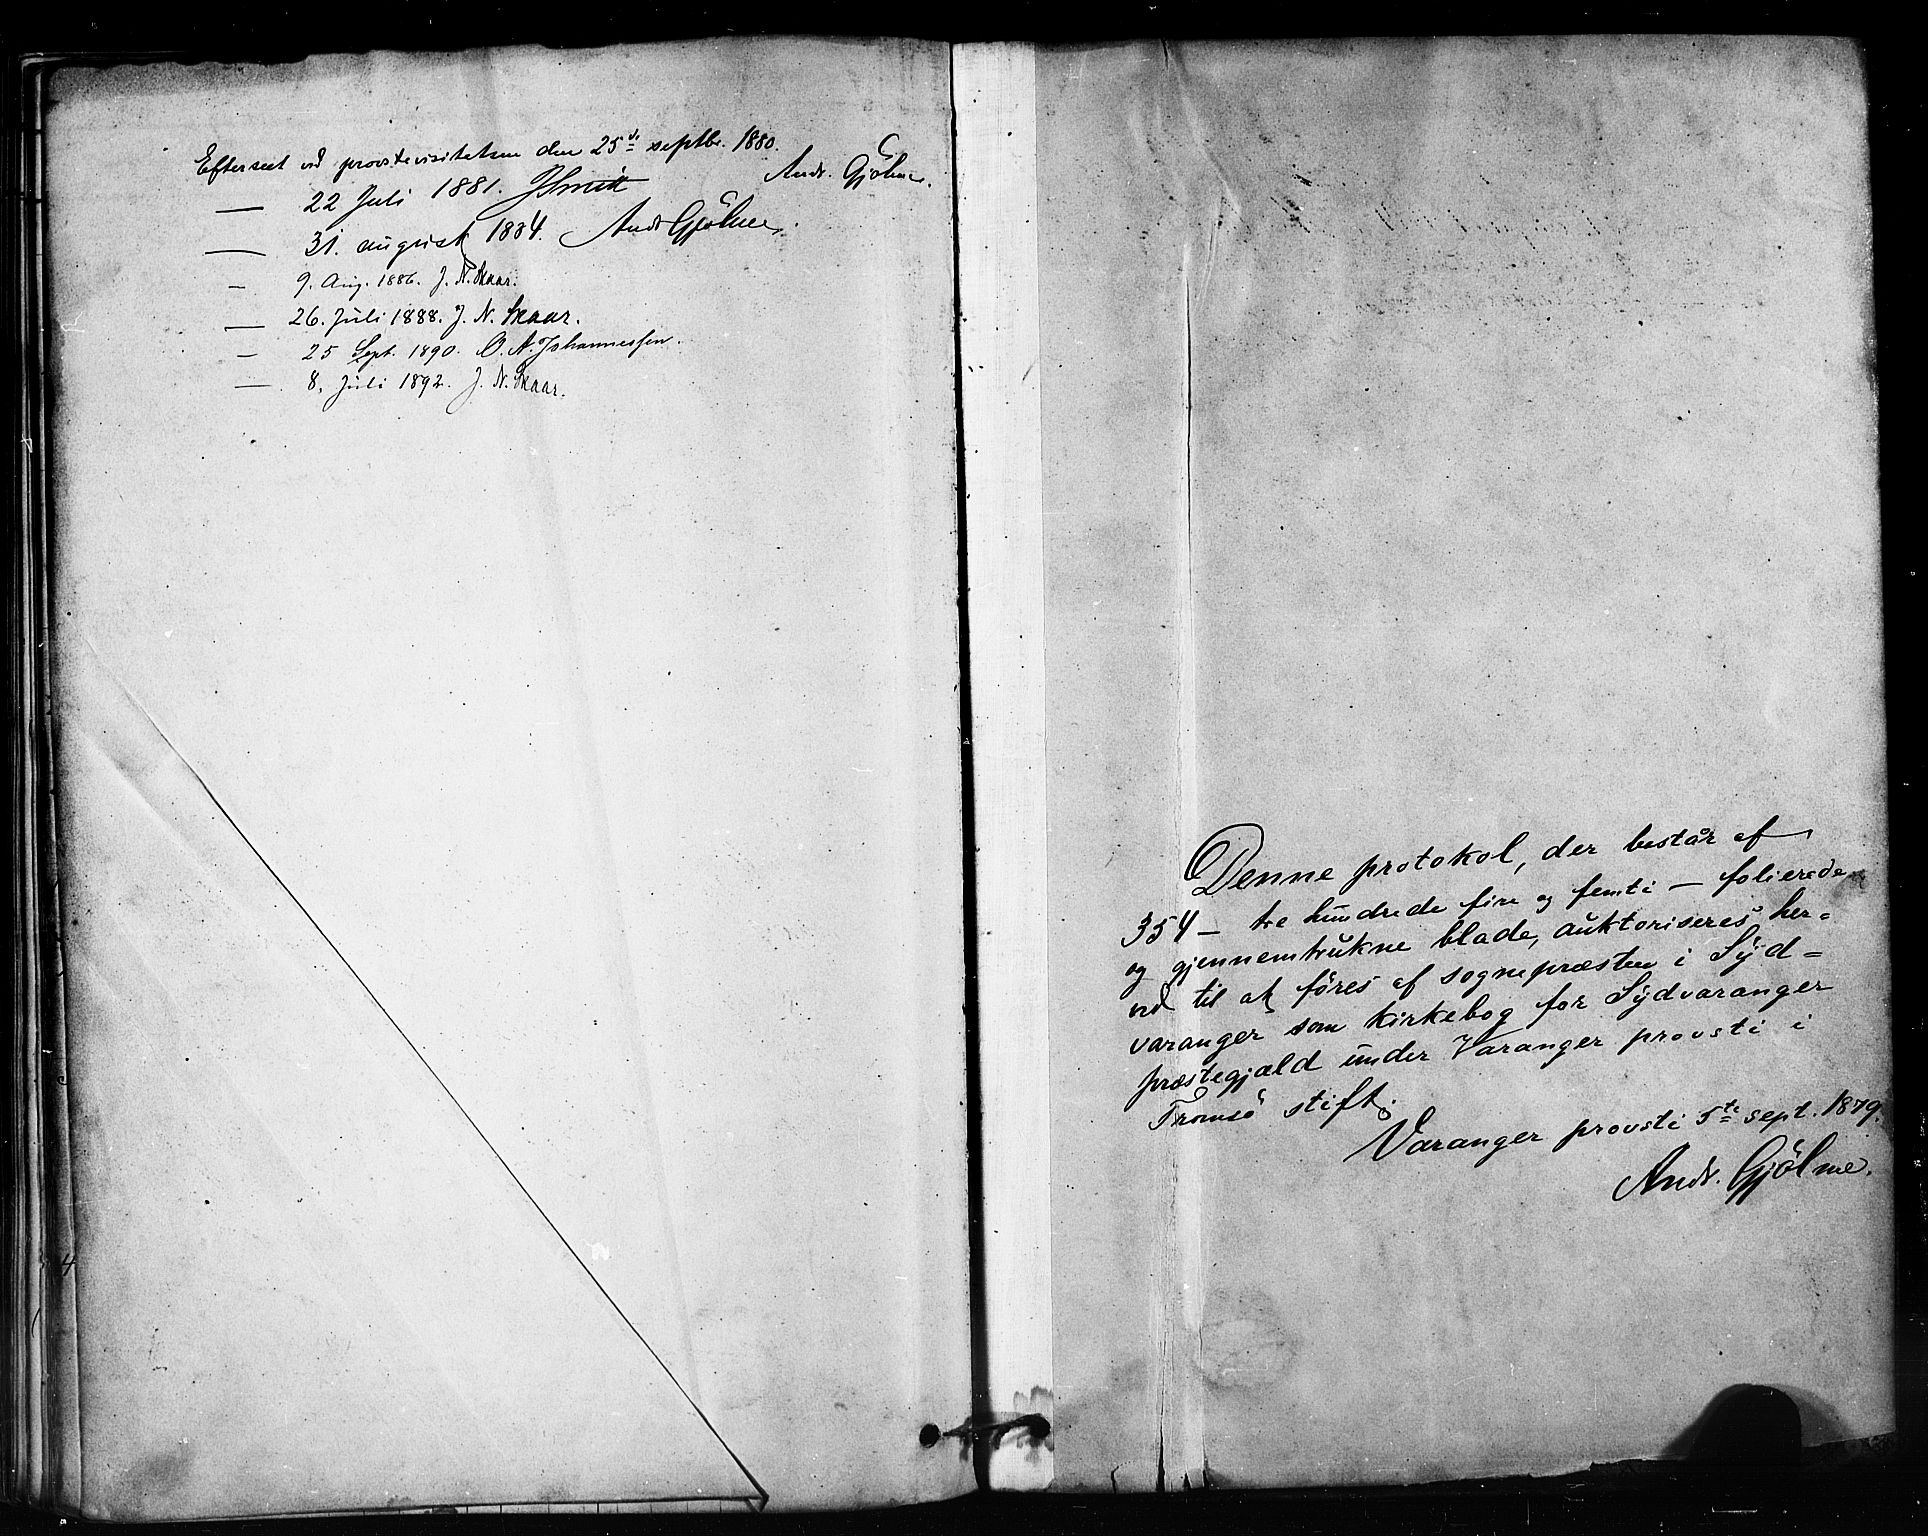 Efterseet ved provstevisitatsen den 25de septbr. 1880.
Andr. Gjölme.
— 22 Juli 1881. JSmitt
— 31. august 1884. Andr Gjölme.
— 9. Aug. 1886. J. N. Skaar.
— 26. Juli 1888. J. N. Skaar.
— 25 Sept. 1890. O. A. Johannessen.
— 8. Juli 1892. J. N. Skaar.
Denne protokol, der består af
354 — tre hundrede fire og femti — folierede
og gjennemtrukne blade, auktoriseres her=
ved til at föres af sognepræsten i Syd=
varanger som kirkebog for Sydvaranger
præstegjæld under Varanger provsti i
Tromsö stift.
Varanger provsti 5te sept. 1879.
Andr. Gjölme.
4